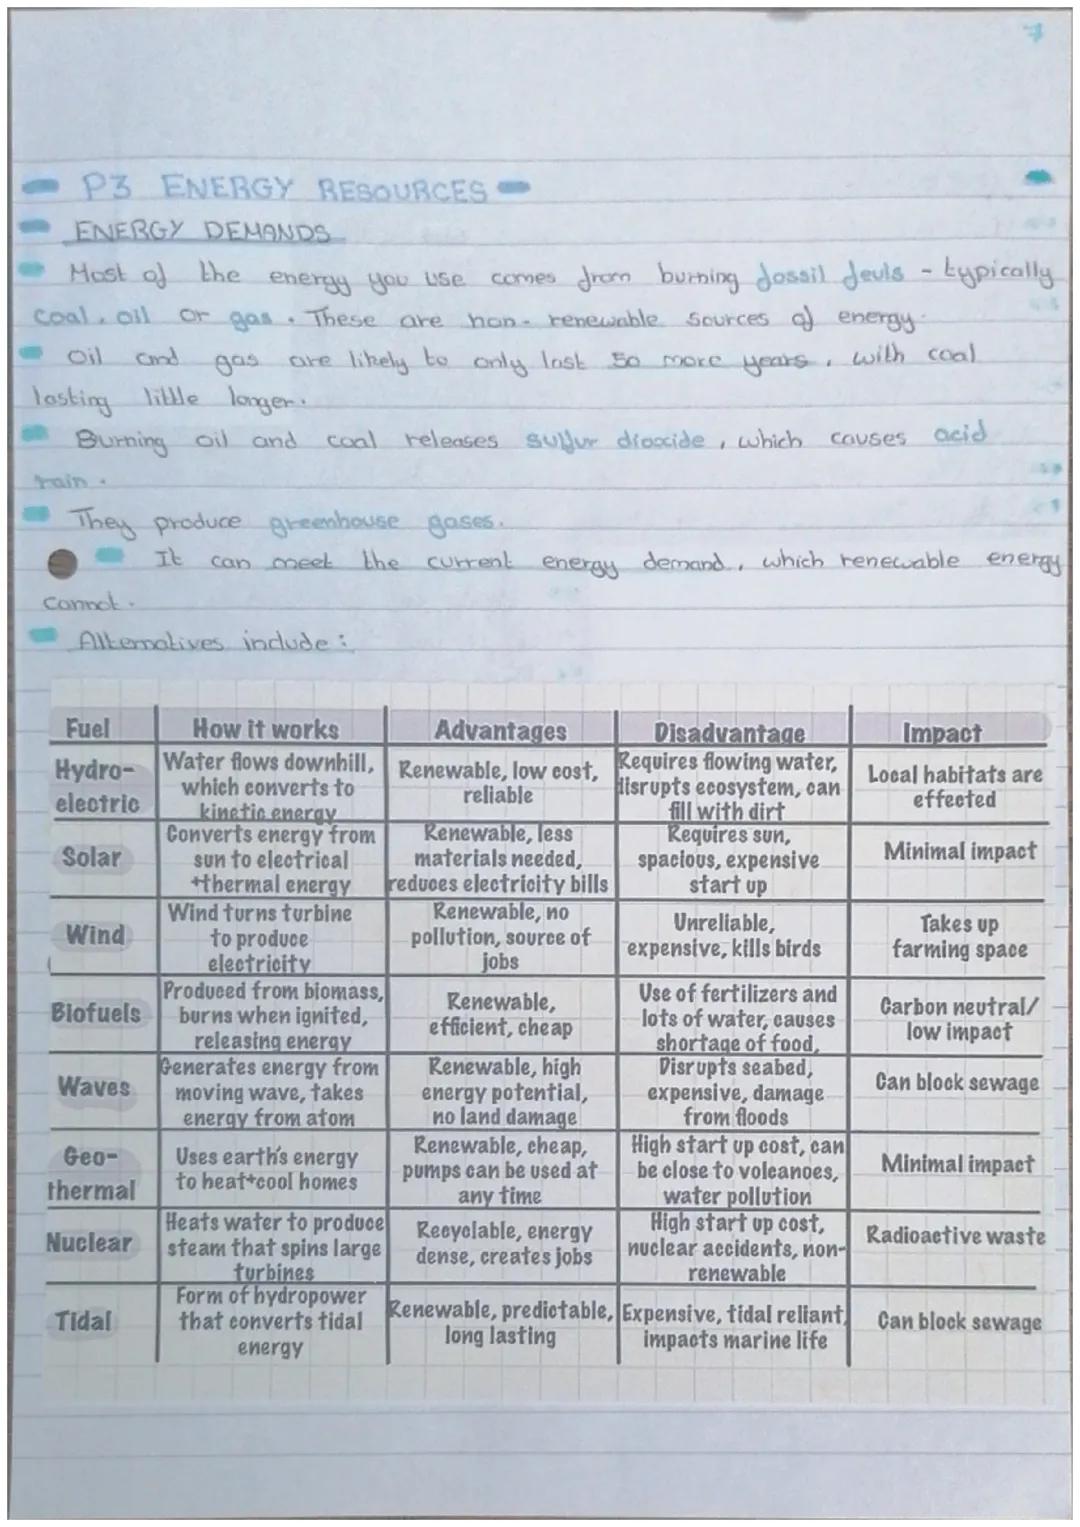 7
P3 ENERGY RESOURCES
ENERGY DEMANDS
Most of the energy you use comes from burning fossil feuls - typically
coal, oil or gas. These are non-renewable sources of energy.
Oil and gas are likely to only last 50 more years, with coal
lasting little longer.
Burning oil and coal releases sulfur dioxide, which causes acid
rain.
They produce greenhouse gases.
It can meet the current energy demand, which renewable energy
cannot.
Alternatives include:
Fuel How it works Advantages Disadvantage Impact
Hydro-
electric
Water flows downhill,
which converts to
kinetic energy
Renewable, low cost,
reliable
Requires flowing water,
disrupts ecosystem, can
fill with dirt
Local habitats are
effected
Solar
Converts energy from
sun to electrical
+thermal energy
Renewable, less
materials needed,
reduces electricity bills
Requires sun,
spacious, expensive
start up
Minimal impact
Wind
Wind turns turbine
to produce
electricity
Renewable, no
pollution, source of
jobs
Unreliable,
expensive, kills birds
Takes up
farming space
Biofuels
Produced from biomass,
burns when ignited,
releasing energy
Renewable,
efficient, cheap
Use of fertilizers and
lots of water, causes
shortage of food,
Carbon neutral/
low impact
Waves
Generates energy from
moving wave, takes
energy from atom
Renewable, high
energy potential,
no land damage
Disrupts seabed,
expensive, damage
from floods
Can block sewage
Geo-
thermal
Uses earth's energy
to heat+cool homes
Renewable, cheap,
pumps can be used at
any time
High start up cost, can
be close to volcanoes,
water pollution
Minimal impact
Nuclear
Heats water to produce
steam that spins large
turbines
Recyclable, energy
dense, creates jobs
High start up cost,
nuclear accidents, non-
renewable
Radioactive waste
Tidal
Form of hydropower
that converts tidal
energy
Renewable, predictable,
long lasting
Expensive, tidal reliant,
impacts marine life
Can block sewage